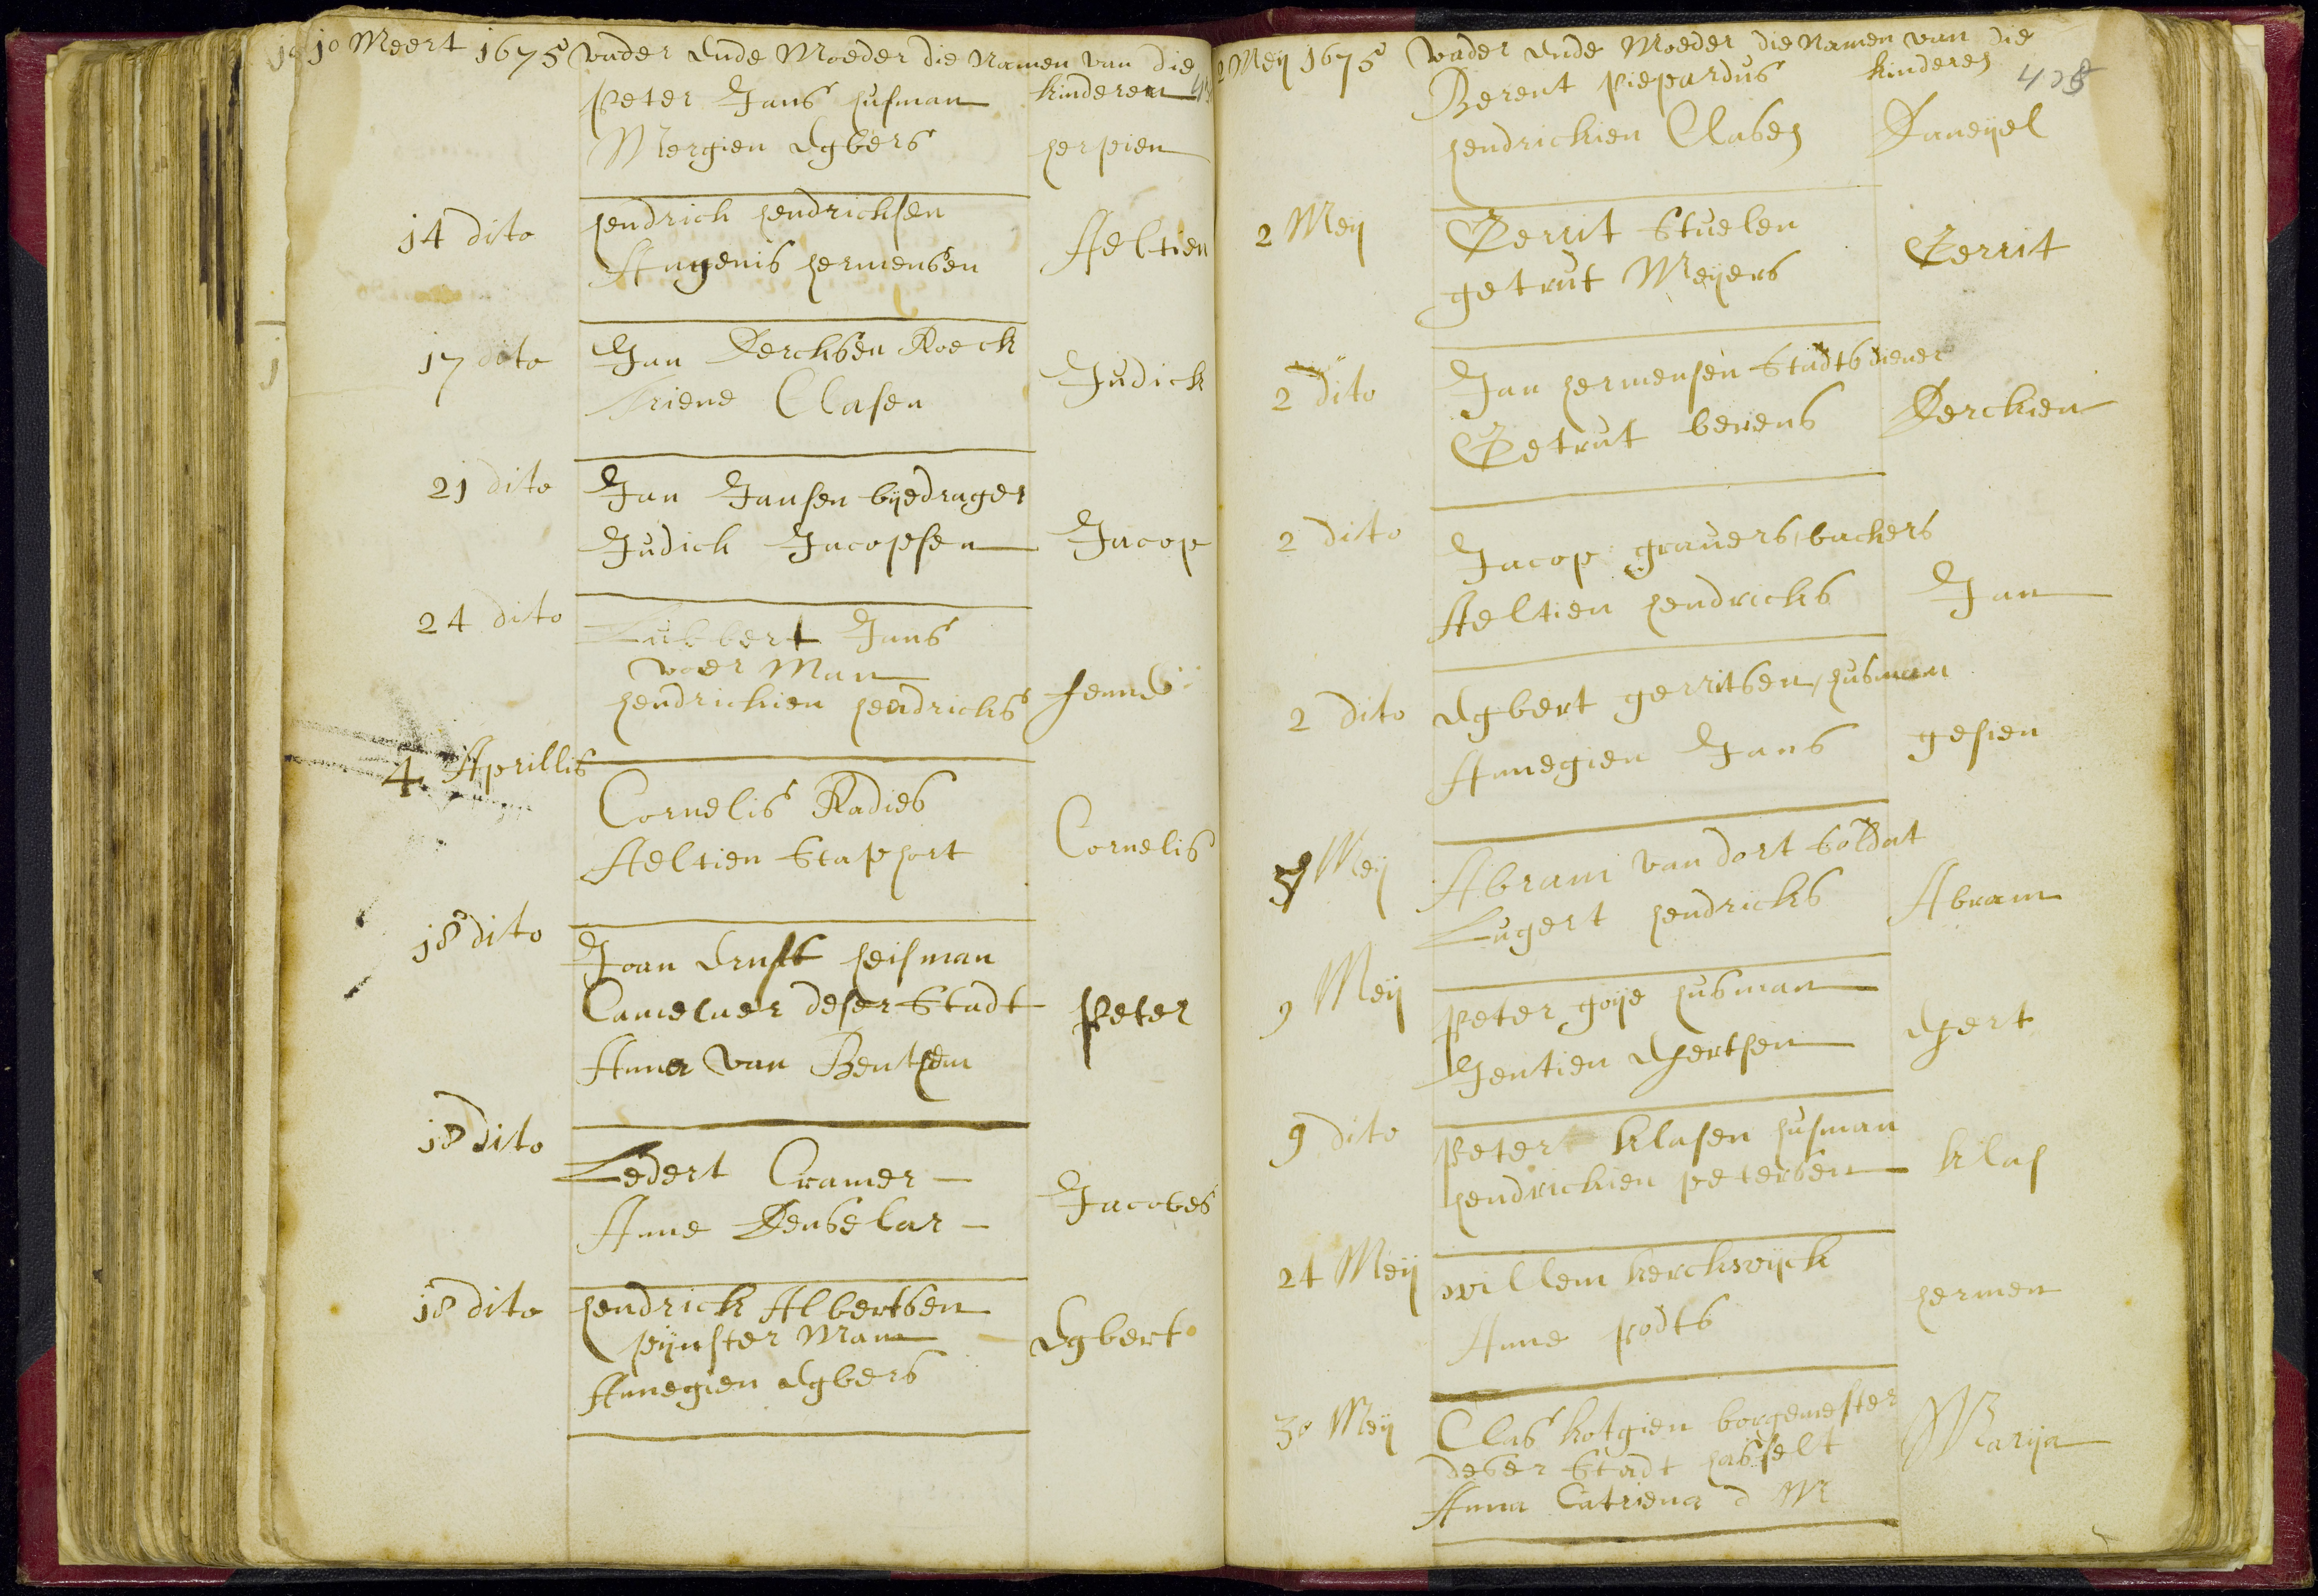 10 Meert 1675 vader Ende Moeder die Namen van die
kinderen
Peter Jans husman
Mergien Egbers
herpien
14 dito
hendrick hendricksen
Angenis hermensen
Aeltien
17 dito
Jan Dercksen Roeck
Triene Clasen
Judick
21 dito
Jan Jansen bijedrager
Judick Jacopsen
Jacop
24 dito
Lubbert Jans
voer Man
hendrickien hendricks
fenne
4 Aprillis
Cornelis Radies
Aeltien Staphort
Cornelis
18 dito
Joan Ernst heisman
Camelner deser Stadt
Anna van Benthem
Peter
18 dito
Ledert Cramer
Anne Denselar
Jacobes
18 dito
hendrick Albertsen
pijnster Man
Annegien Egbers
Egbert
2 Meij 1675 vader Ende Moeder die Namen van die
kinderen
408
Berent piepardus
hendrickien Clasen
Daneijel
2 Meij
Gerrit Stuelen
getrut Meijers
Gerrit
2 dito
Jan hermensen Stadts diener
Getrut berens
Derckien
2 dito
Jacop gravers, backers
Aeltien hendricks
Jan
2 dito
Egbert gerritsen, husman
Annegien Jans
gesien
Meij
Abram van dort Soldat
Lugert hendricks
Abram
9 Meij
Peter goije husman
Jentien Efertsen
Efert
9 dito
Peter klasen husman
hendrickien petersen
klas
24 Meij
willem kerckwijck
Anne podts
hermen
30 Meij
Clas kotgien borgemester
deser Stadt hasselt
Anna Catriena d M
Marija